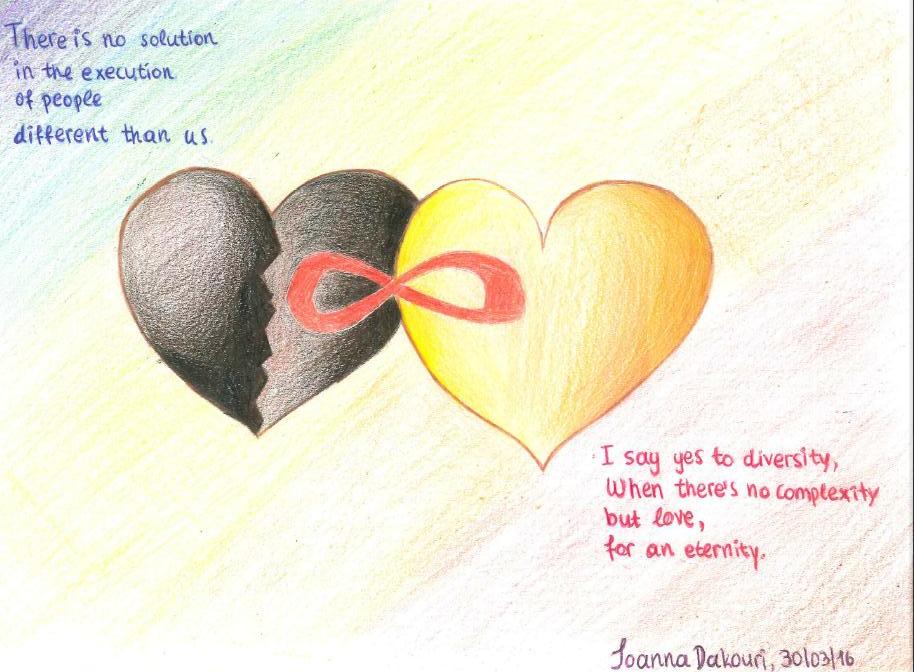 There is no solution
in the execution
of people
different than us.
I say yes to diversity,
When there's no complexity
but love,
for an eternity.
Ioanna Dakouri, 30/03/16